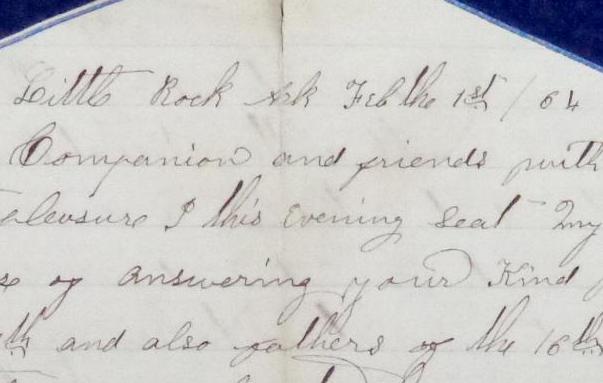 Little Rock Ark Feb the 1st / 64
Companion and friends with
pleasure I this evening seat my
of answering your Kind
th and also fathers of the 16th